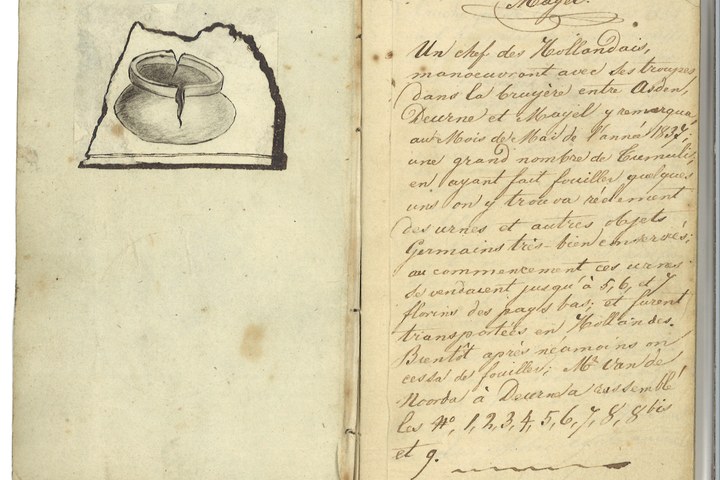 Mayel.
Un chef des Hollandais,
manoeuvront avec ses troupes
dans la bruyère entre Asden,
Deurne et Mayel y remerqua,
au Mois de Mai de l'anna 1837;
une grand nombre de Tumulis,
en ayant fait fouiller quelques
uns on y trouva réelment
des urnes et autres objets
Germains très-bien conservés;
au commencement ces urnes
se vendaient jusqu'à 5, 6, et 7
florins des pays bas; et furent
transportées en Hollandes.
Bientôt après néamoins on
cessa de fouiller; Mr. Van de
Noorda à Deurne a rassemblé
les No, 1, 2, 3, 4, 5, 6, 7, 8, 8 bis
et 9.